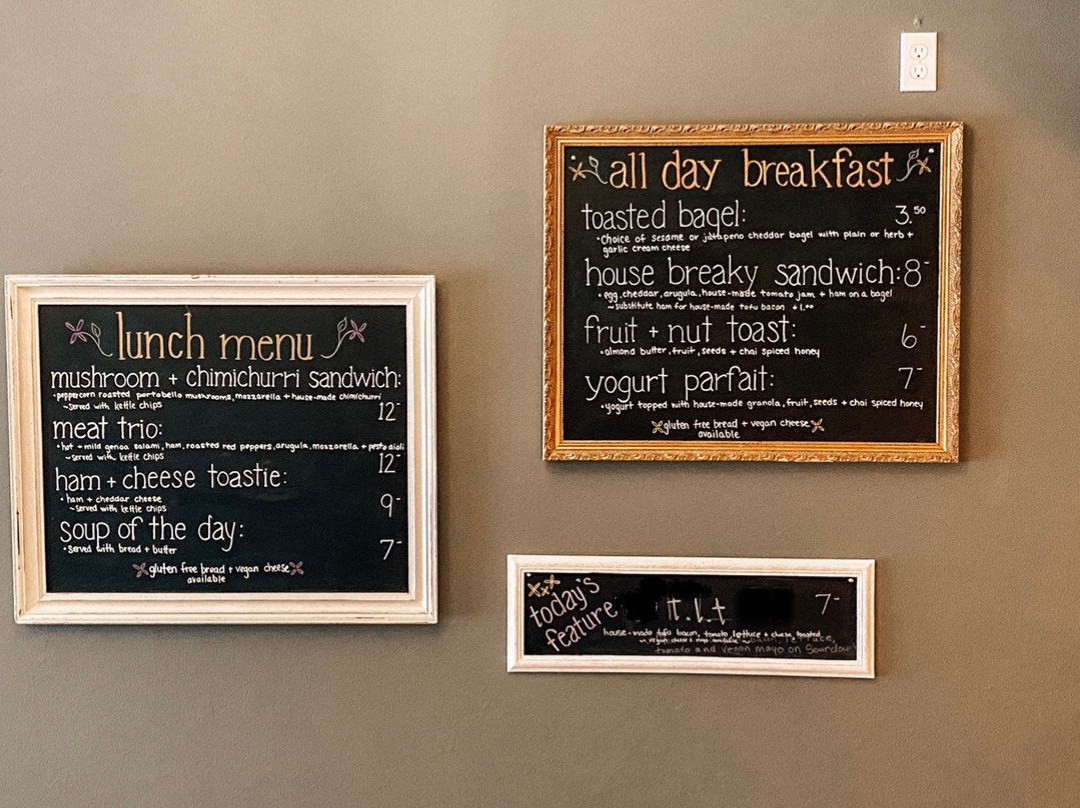 lunch menu
mushroom + chimichurri sandwich:
•peppercorn roasted portobello mushrooms, mozzarella + house-made chimichurri
~served with kettle chips 12-
meat trio:
•hot + mild genoa salami, ham, roasted red peppers, arugula, mozzarella + pesto aioli
~served with kettle chips 12-
ham + cheese toastie:
• ham + cheddar cheese
~served with kettle chips 9-
soup of the day:
•served with bread + butter 7-
gluten free bread + vegan cheese
available
all day breakfast
toasted bagel: 3.50
•Choice of sesame or jalapeno cheddar bagel with plain or herb +
garlic cream cheese
house breaky sandwich: 8-
• egg, cheddar, arugula, house-made tomato jam + ham on a bagel
~substitute ham for house-made tofu bacon +1.00
fruit + nut toast: 6-
•almond butter, fruit, seeds + chai spiced honey
yogurt parfait: 7-
•yogurt topped with house-made granola, fruit, seeds + chai spiced honey
gluten free bread + vegan cheese
available
today's
feature
t.l.t 7-
house-made tofu bacon, tomato, lettuce + cheese, toasted
lettuce,
tomato and vegan mayo on Sourdow